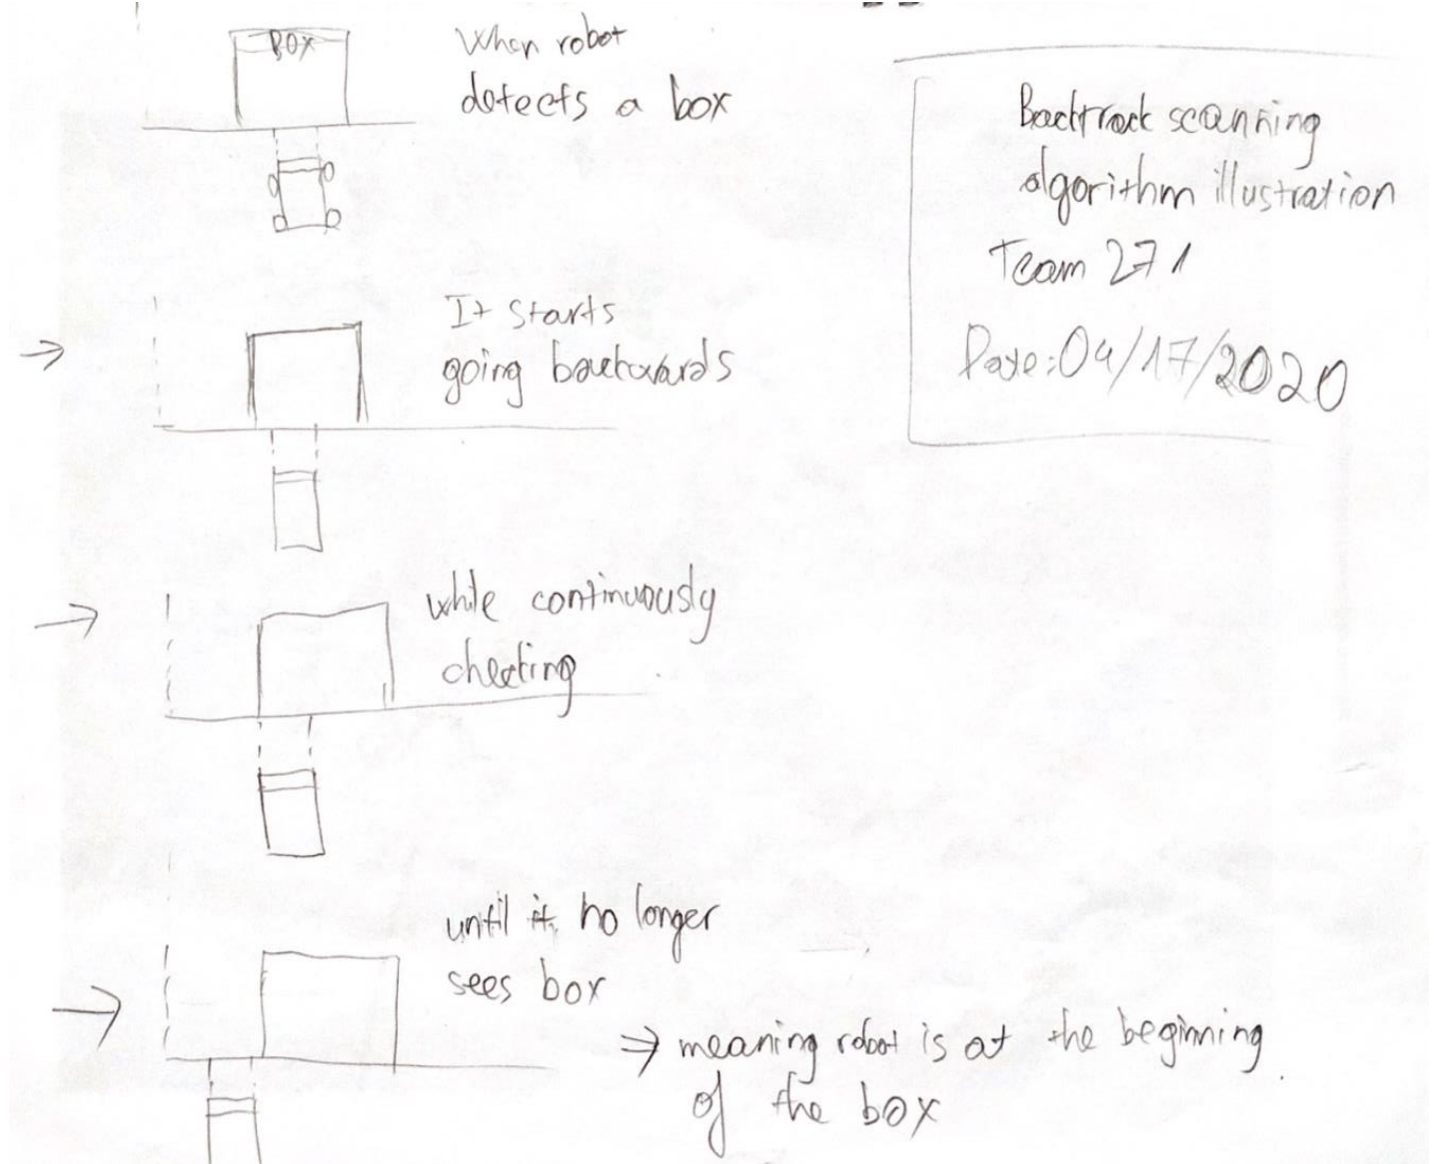 BOX
When robot
detects a box
Backtrack scanning
algorithm illustration
Team 271
Date: 04/17/2020
It starts
going backwards
while continuously
checking
until it no longer
sees box
→ meaning robot is at the beginning
of the box